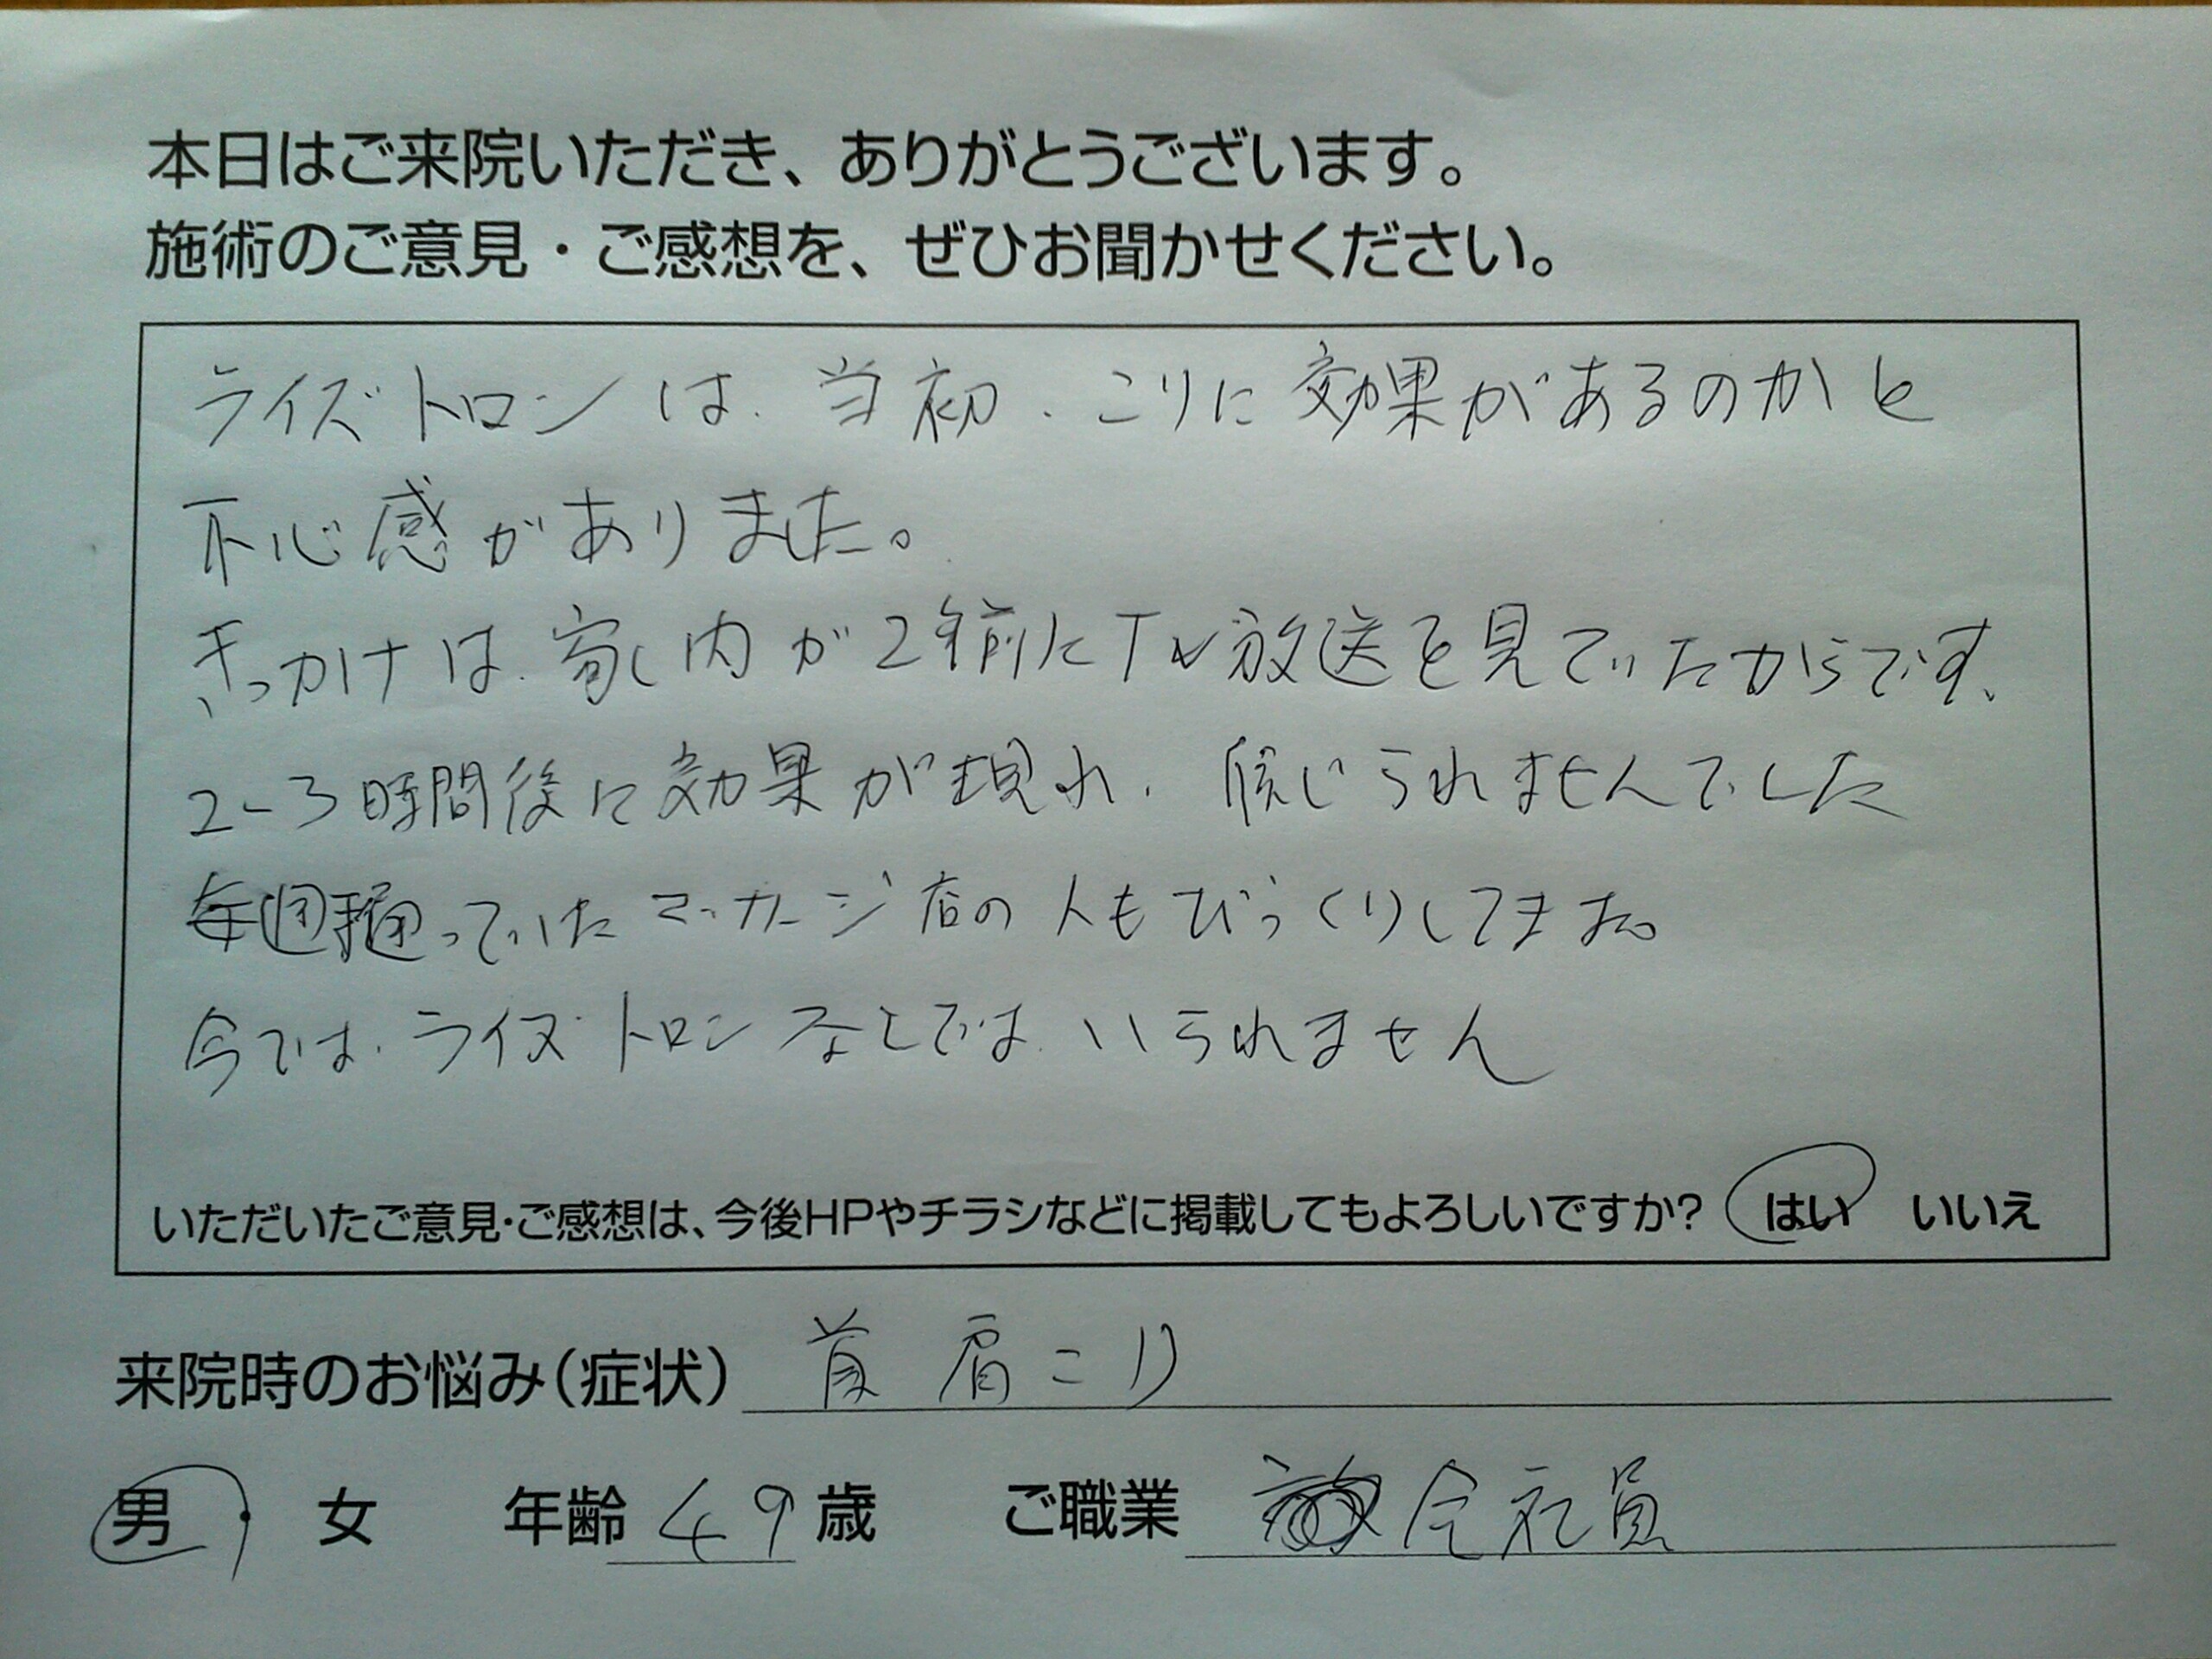 本日はご来院いただき、ありがとうございます。
施術のご意見・ご感想を、ぜひお聞かせください。
ライズトロンは、当初、こりに効果があるのかと
不心感がありました。
きっかけは、家内が2年前にTV放送を見ていたからです、
2-3時間後に効果が現れ、信じられませんでした
毎週通っていたマッサージ店の人もびっくりしてました。
今では、ライズトロンなしでは、いられません
いただいたご意見・ご感想は、今後HPやチラシなどに掲載してもよろしいですか? はい いいえ
来院時のお悩み(症状) 首 肩こり
男 ・ 女 年齢 49 歳 ご職業 会社員